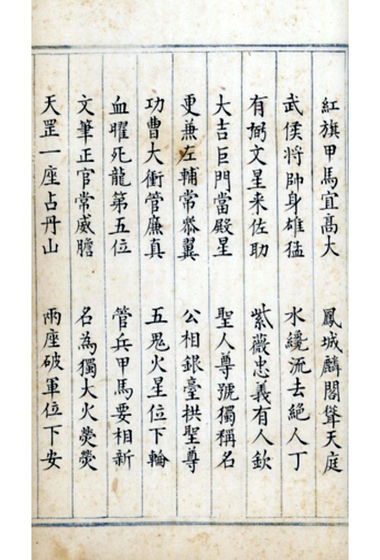 紅旗甲馬宜高大 鳳城麟閣聳天庭
武侯將帥身雄猛 水纔流去絕人丁
有弼文星来佐助 紫薇忠義有人欽
大吉巨門當殿星 聖人尊號獨稱名
更兼左輔常叅翼 公相銀臺拱聖尊
功曹大衝管廉真 五鬼火星位下輪
血曜死龍第五位 管兵甲馬要相新
文筆正官常威膽 名為獨大火熒熒
天罡一座占丹山 兩座破軍位下安